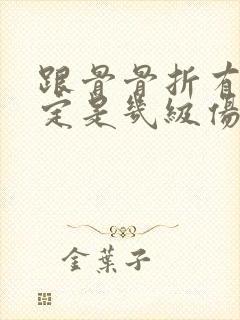 跟骨骨折有
定是幾級傷
金葉子